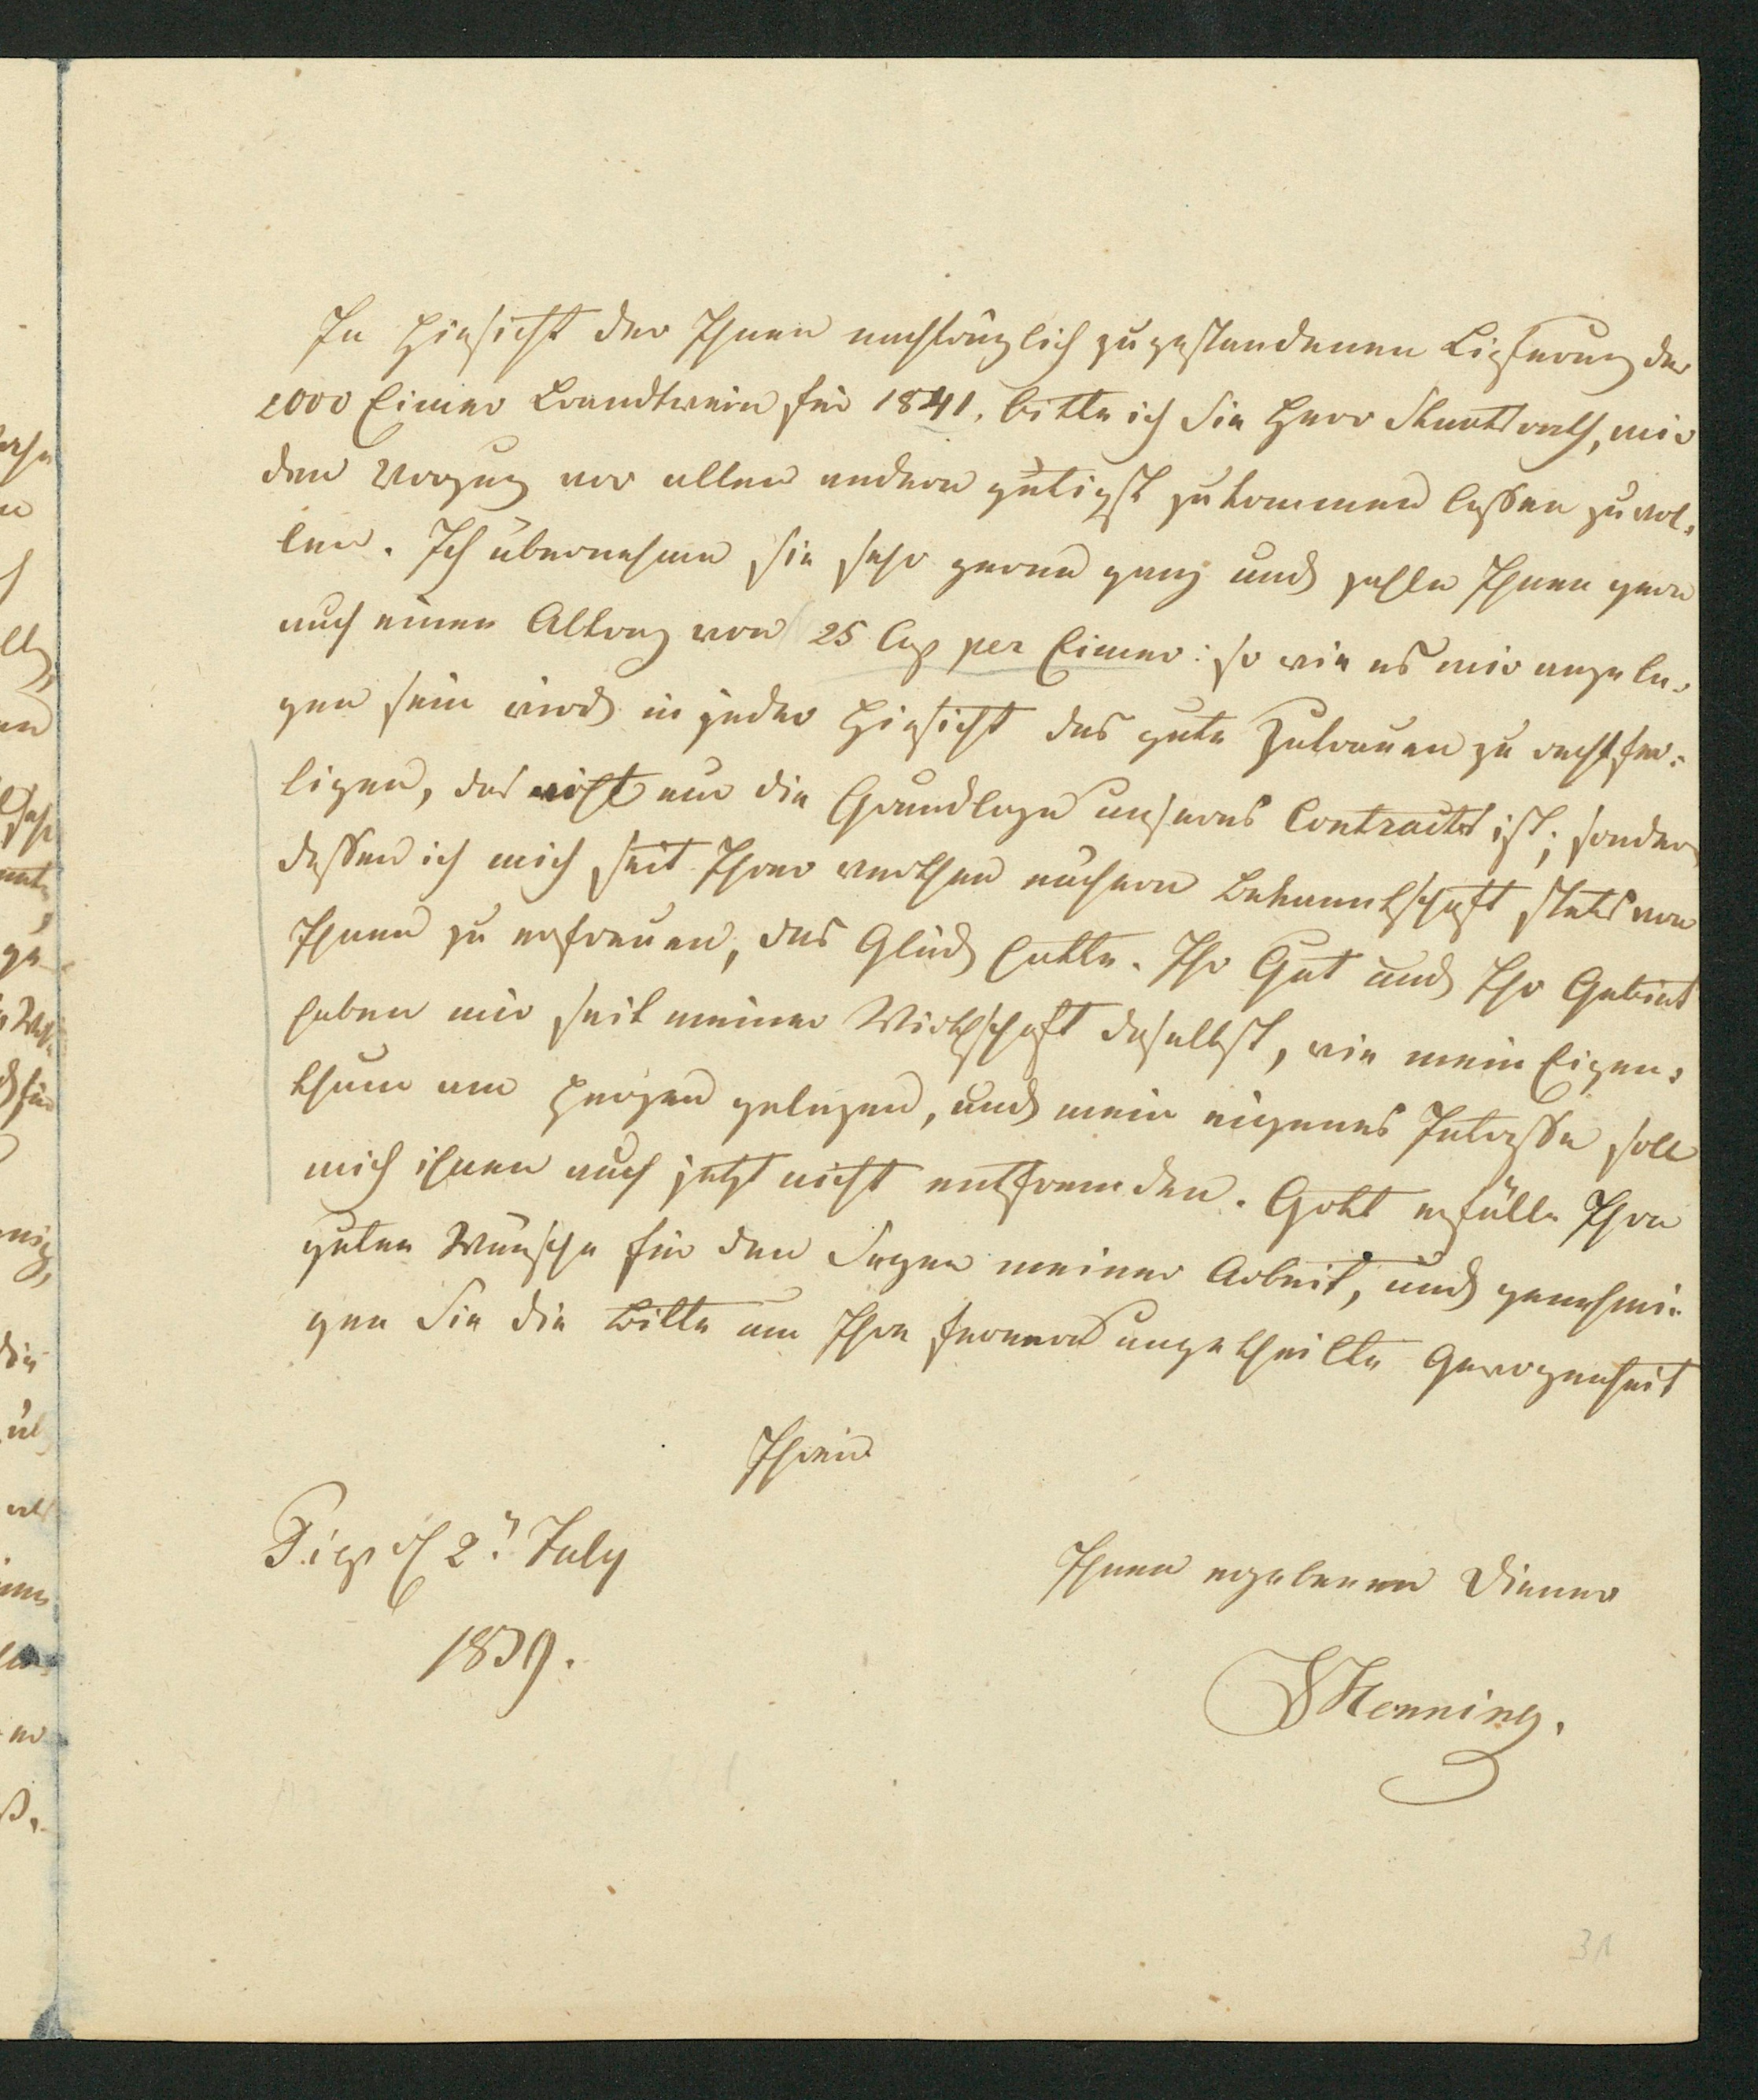 In Hinsicht der Ihnen nachträglich zugestandenen Lieferung der
2000 Eimer Brandtwein für 1841. bitte ich Sie Herr Staatsrath, mir
den Vorzug vor allen andern gütigst zukommen lassen zu wol-
len. Ich übernehme sie sehr gerne ganz und zahle Ihnen gern
auch einen Abtrag von 25 Cop per Eimer: so wie es mir angele-
gen sein wird in jeder Hinsicht das gute Zutrauen zu rechtfer-
tigen, das nicht nur die Grundlage unseres Contracts ist; sondern
dessen ich mich seit Ihrer werthen nähern Bekanntschaft stets von
Ihnen zu erfreuen, das Glück hatte. Ihr Gut und Ihr Gebiet
haben mir seit meiner Wirthschaft daselbst, wie mein Eigen-
thum am Herzen gelegen, und mein eigenes Interesse soll
mich ihnen auch jetzt nicht entfremden. Gott erfülle Ihre
guten Wünsche für den Segen meiner Arbeit, und genehmi-
gen Sie die Bitte um Ihre ferneres ungetheilte Gewogenheit
Ihrem
d 2 July
1839.
Ihnen ergebenen Diener
Henning.
31